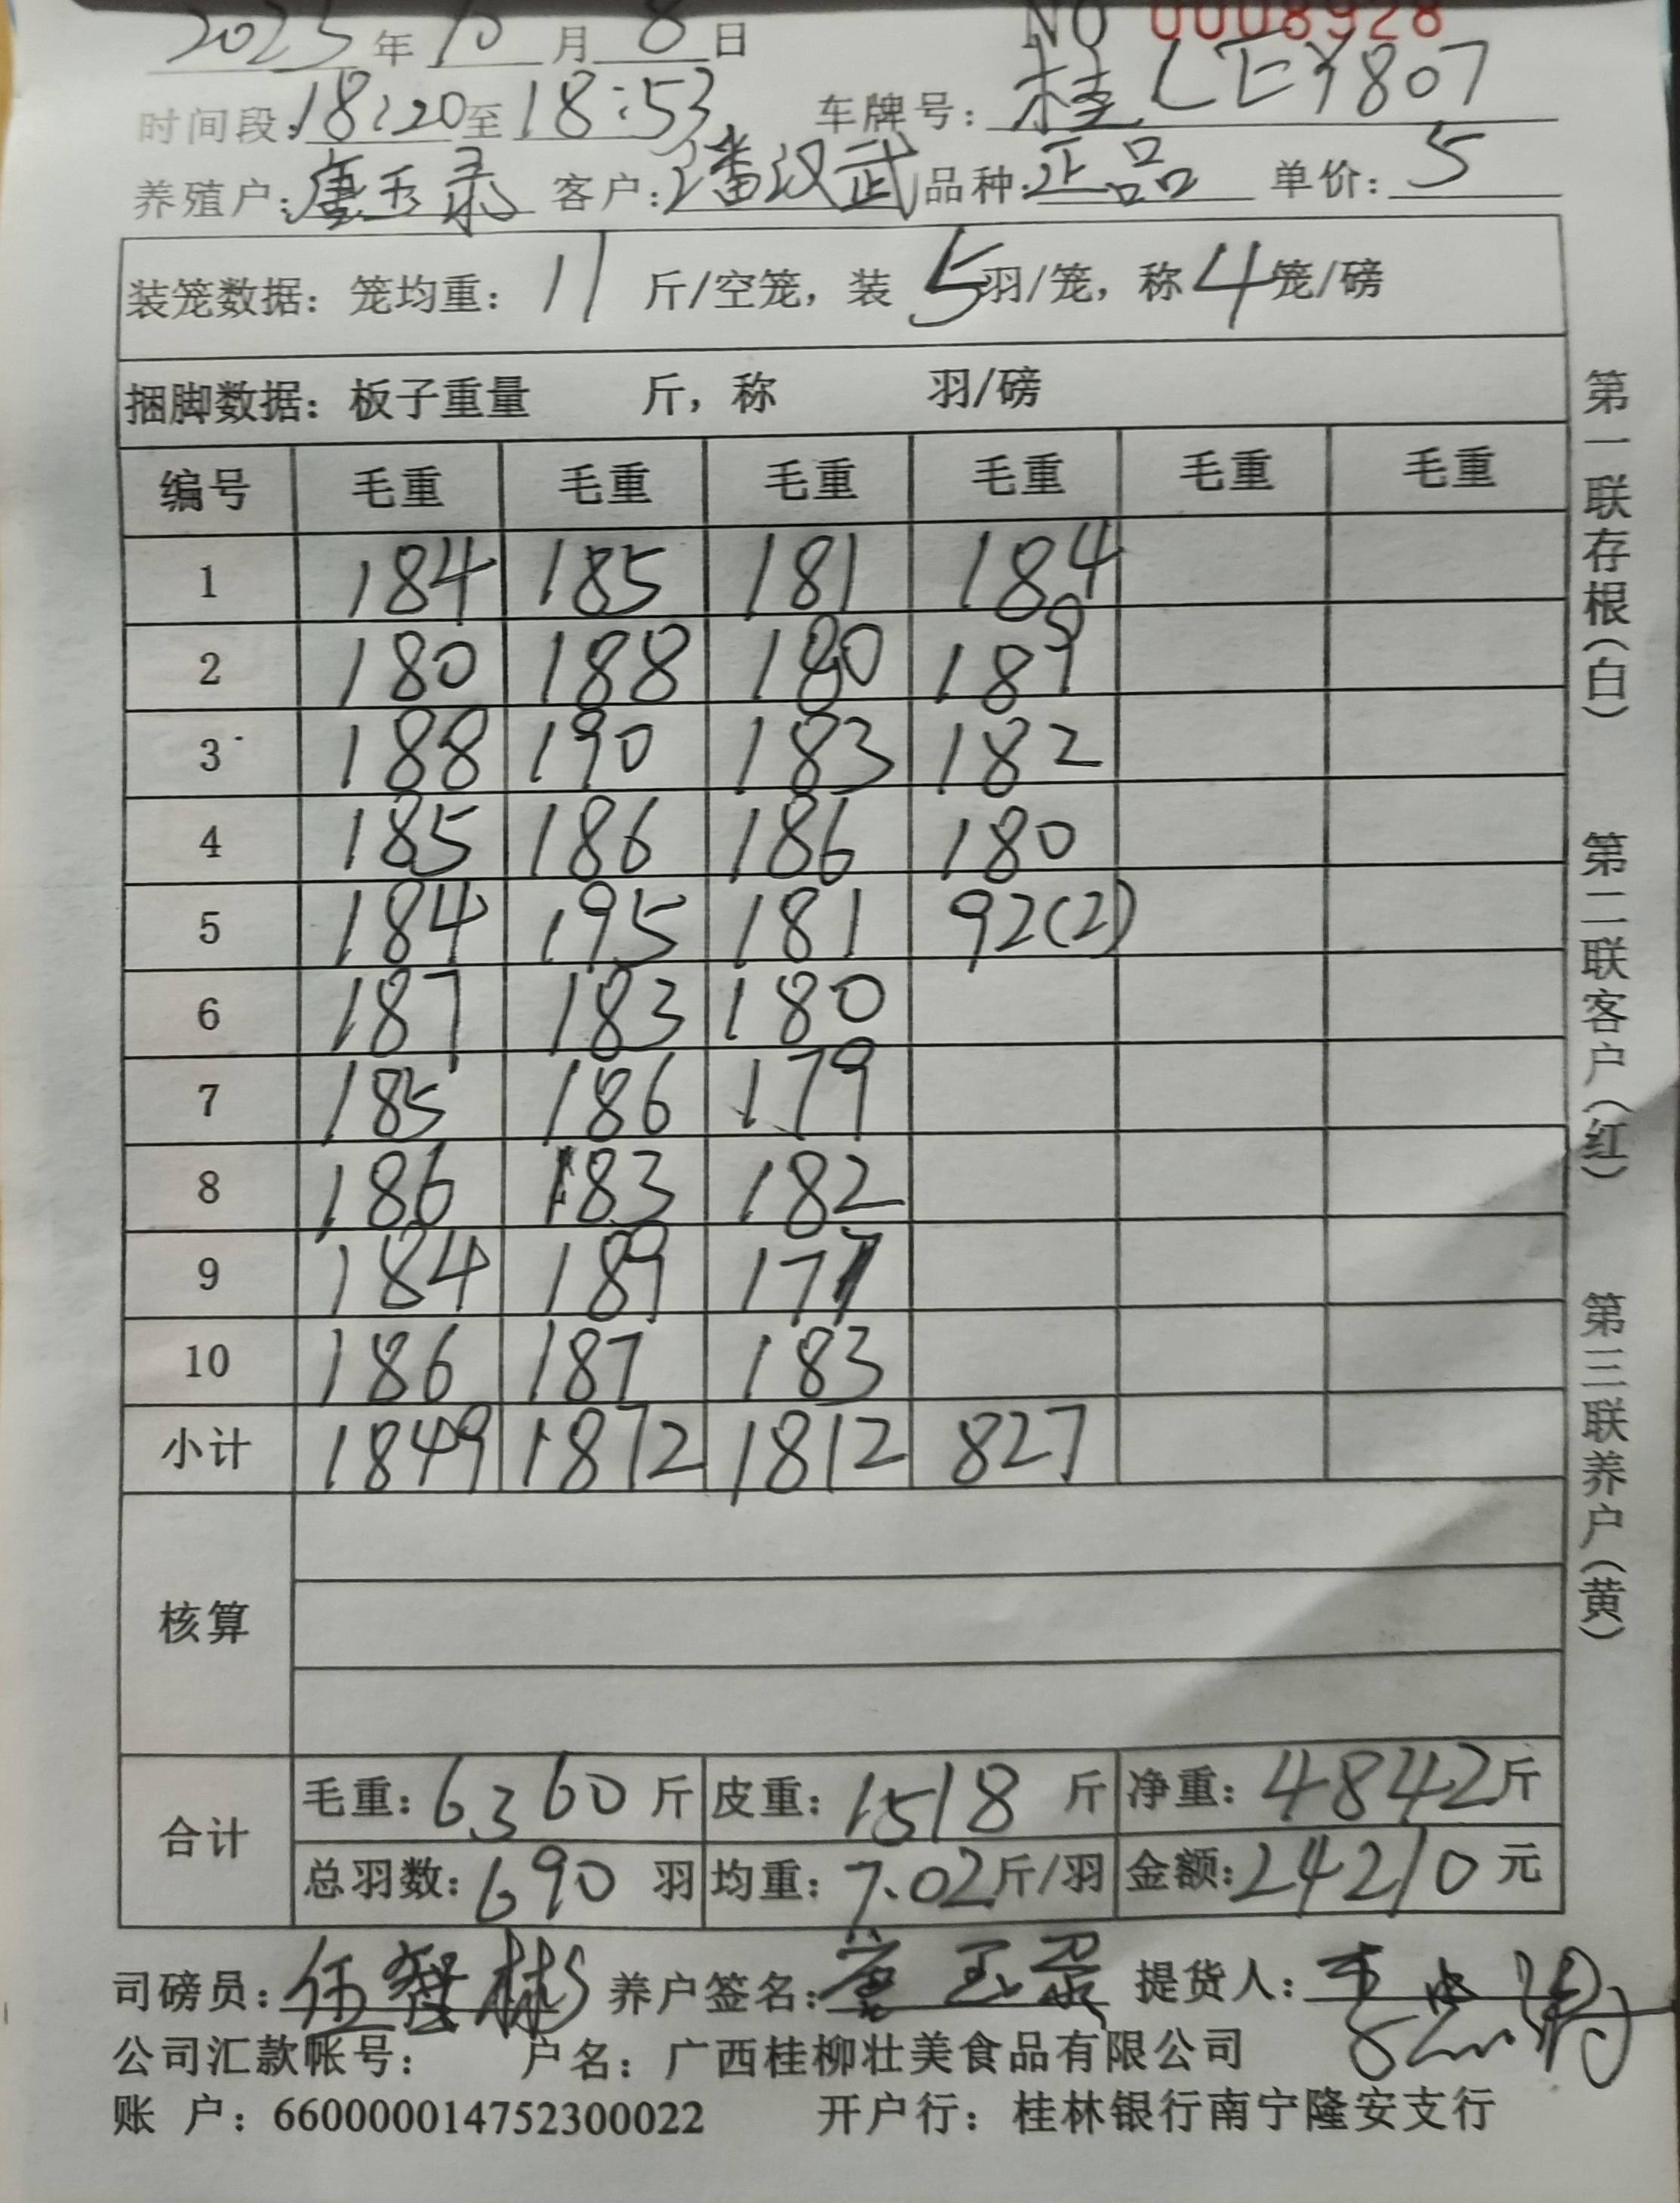 2025年10月8日 NO 0008928
时间段:18:20至18:53 车牌号:桂LEY807
养殖户:唐玉录 客户:潘汉武 品种:正品 单价:5
装笼数据:笼均重:11斤/空笼,装5羽/笼,称4笼/磅
捆脚数据:板子重量 斤,称 羽/磅
编号 毛重 毛重 毛重 毛重 毛重 毛重
1 184 185 181 184
2 180 188 180 189
3 188 190 183 182
4 185 186 186 180
5 184 195 181 92(2)
6 187 183 180
7 185 186 179
8 186 183 182
9 184 189 177
10 186 187 183
小计 1849 1872 1812 827
核算
合计 毛重:6360斤 皮重:1518斤 净重:4842斤
总羽数:690羽 均重:7.02斤/羽 金额:24210元
司磅员:伍智彬 养户签名: 提货人:
公司汇款帐号: 户名:广西桂柳壮美食品有限公司
账 户:660000014752300022 开户行:桂林银行南宁隆安支行
第一联存根(白) 第二联客户(红) 第三联养户(黄)